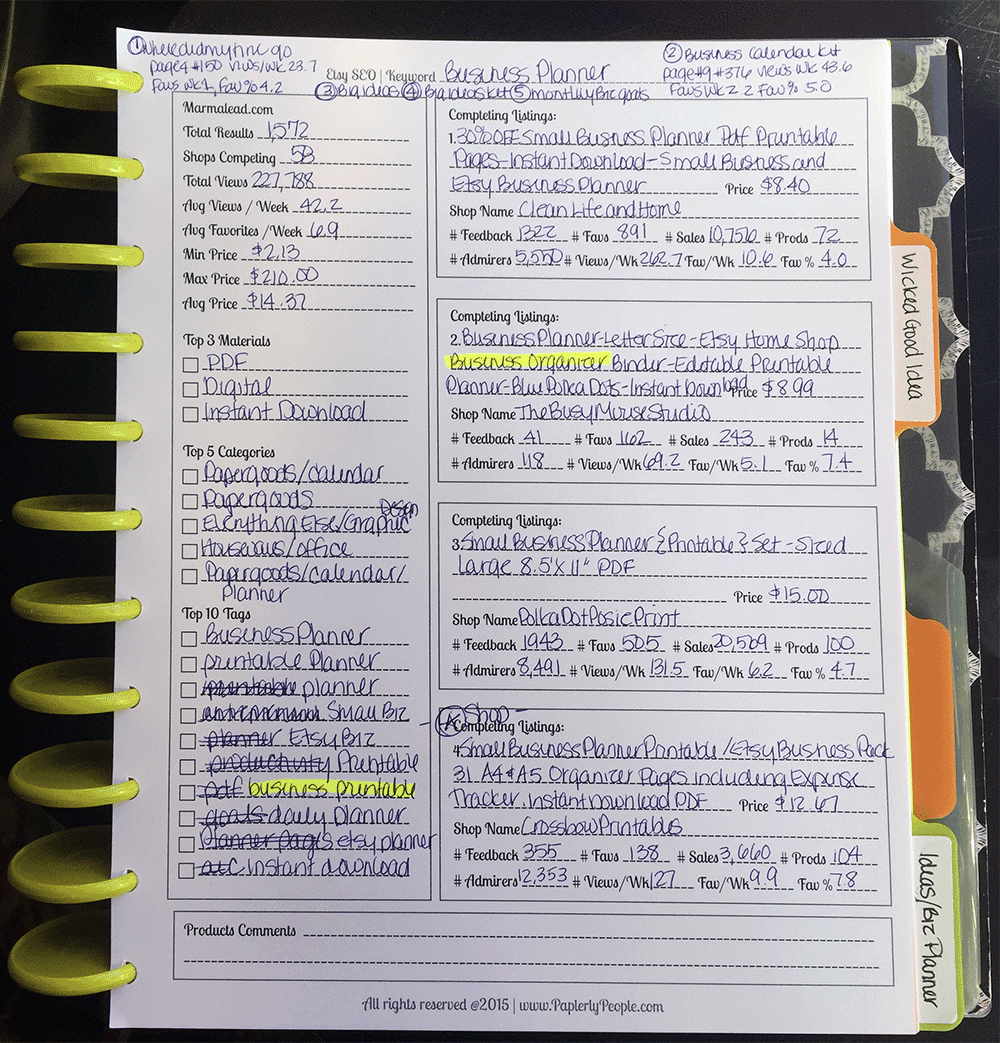 ① wheredidmytime go
page 4 #150 views/wk 23.7
Favs wk 1, Fav % 4.2
② Business Calendar kit
page #9 #376 views wk 43.6
Favs wk 2.2 Fav % 5.0
Etsy SEO | Keyword Business Planner
③ Big ideas ④ Big ideas kit ⑤ monthly Biz goals
Marmalead.com
Total Results 1,572
Shops Competing 58
Total Views 227,788
Avg Views / Week 42.2
Avg Favorites /Week 6.9
Min Price $2.13
Max Price $210.00
Avg Price $14.37
Top 3 Materials
PDF
Digital
Instant Download
Top 5 Categories
Papergoods/calendar
Papergoods
Everything Else/Graphic Design
Housewares/office
Papergoods/calendar/
planner
Top 10 Tags
Business Planner
printable Planner
printable planner
entrepreneur Small Biz
planner Etsy Biz
productivity Printable
pdf business printable
goals daily planner
Planner pages etsy planner
instant download
Completing Listings:
1. 30% OFF Small Business Planner Pdf Printable
Pages-Instant Download-Small Business and
Etsy Business Planner Price $8.40
Shop Name Clean Life and Home
# Feedback 1322 # Favs 891 # Sales 10,756 # Prods 72
# Admirers 5,550 # Views/Wk 262.7 Fav/Wk 10.6 Fav % 4.0
Completing Listings:
2. Business Planner-Letter Size-Etsy Home Shop
Business Organizer Binder-Editable Printable
Planner-Blue Polka Dots-Instant Download Price $8.99
Shop Name TheBusyMouseStudio
# Feedback 41 # Favs 162 # Sales 243 # Prods 14
# Admirers 118 # Views/Wk 69.2 Fav/Wk 5.1 Fav % 7.4
Completing Listings:
3. Small Business Planner {Printable} Set-Sized
Large 8.5"X11" PDF
Price $15.00
Shop Name PolkaDotPosiePrint
# Feedback 1943 # Favs 505 # Sales 20,509 # Prods 100
# Admirers 8,491 # Views/Wk 131.5 Fav/Wk 6.2 Fav % 4.7
Shop -
Completing Listings:
4. Small Business Planner Printable /Etsy Business Pack
31 A4 & A5 Organizer Pages including Expense
Tracker. Instant Download PDF Price $12.67
Shop Name CrossbowPrintables
# Feedback 355 # Favs 138 # Sales 3,660 # Prods 104
# Admirers 12,353 # Views/Wk 127 Fav/Wk 9.9 Fav % 7.8
Products Comments
All rights reserved @2015 | www.PaplerlyPeople.com
Wicked Good Idea
Ideas/Biz Planner